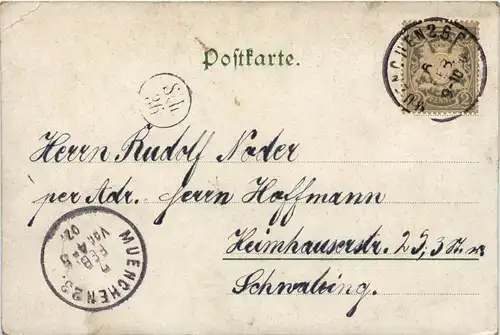 Postkarte.
MUENCHEN 2 B.P.
Sch
36
Herrn Rudolf Noder
per Adr. Herrn Hoffmann
Heimhauserstr. 23, 3 St. r.
Schwabing.
MUENCHEN 23.
FEB
02